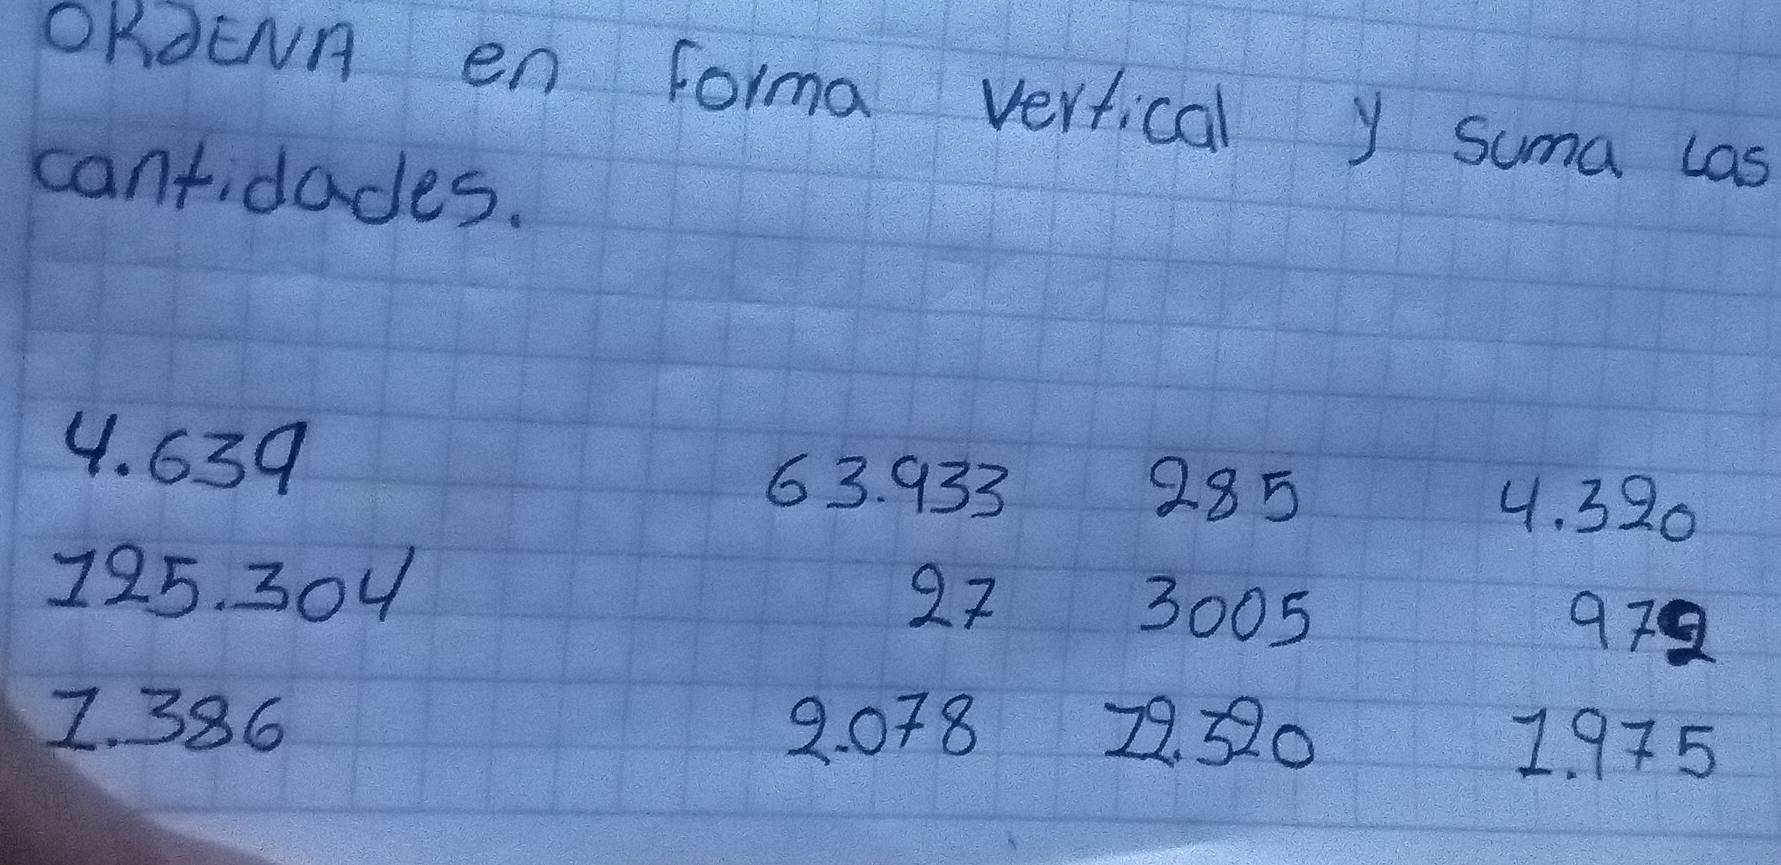 ORDENA en forma vertical y suma las
cantidades.
4.639 63.933 285 4.320
125.304 27 3005 972
1.386 2.078 12.320 1.975